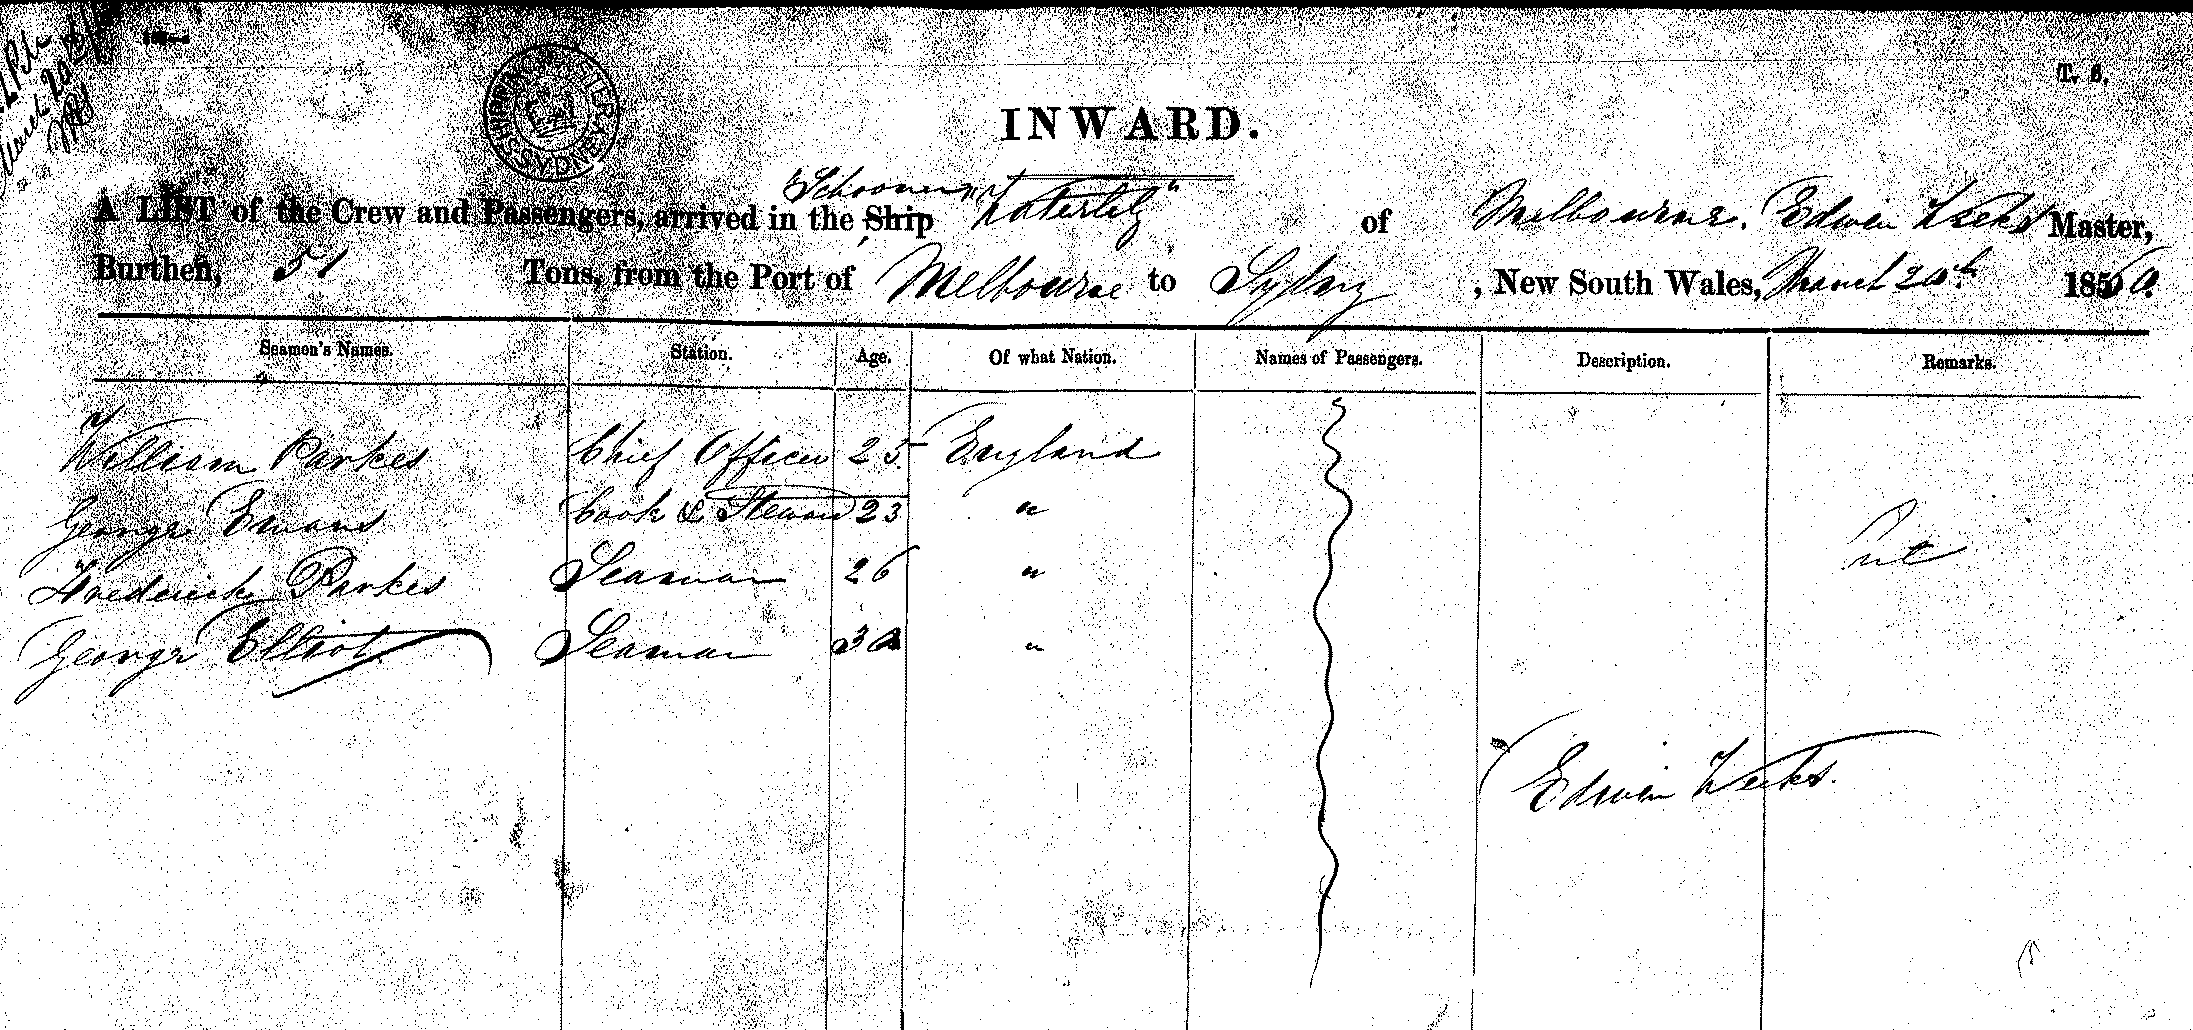 March 20
T. 6.
SHIPPING MASTER
SYDNEY
INWARD.
"Schooner"
A LIST of the Crew and Passengers, arrived in the Ship "Waterlily" of Melbourne. Edwin Weeks Master,
Burthen, 51 Tons, from the Port of Melbourne to Sydney, New South Wales, March 20th 1860.
Seamen's Names. Station. Age. Of what Nation. Names of Passengers. Description. Remarks.
William Parkes Chief Officer 25 England
George Emons Cook & Steward 23 "
Frederick Parkes Seaman 26 "
George Elliot Seaman 30 "
Edwin Weeks.